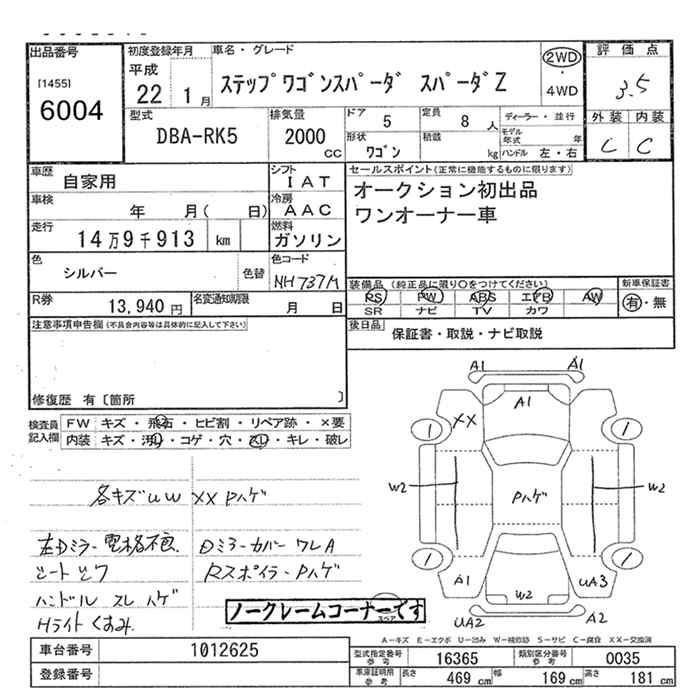 出品番号
[1455]
6004
初度登録年月
平成
22 1月
車名・グレード
ステップワゴンスパーダ スパーダZ
2WD
・
4WD
評価点
3.5
外装 内装
C C
型式
DBA-RK5
排気量
2000
cc
ドア
5
定員
8 人
形状
ワゴン
積載
kg
ディーラー・並行
モデル年式 年
ハンドル 左・右
車歴
自家用
シフト
IAT
車検
年 月( 日)
冷房
AAC
走行
14万9千913 km
燃料
ガソリン
色
シルバー
色替
色コード
NH737M
R券
13,940 円
名変通知期限
月 日
セールスポイント(正常に機能するものに限ります)
オークション初出品
ワンオーナー車
装備品(純正品に限り〇をつけてください)
PS PW ABS エアB AW
SR ナビ TV カワ
新車保証書
有・無
後日品
保証書・取説・ナビ取説
注意事項申告欄(不具合内容等は具体的に記入して下さい)
修復歴 有〔箇所 〕
検査員
記入欄
FW キズ・飛石・ヒビ割・リペア跡・×要
内装 キズ・汚れ・コゲ・穴・スレ・キレ・破レ
各キズUW XX Pハゲ
左Dミラー電格不良 Dミラーカバー ワレA
シート シワ Rスポイラー Pハゲ
ハンドル スレ ハゲ
Hライト くすみ
ノークレームコーナーです
A1 A1
A1
XX
1 1
W2 Pハゲ W2
1 1
A1 UA3
W2
UA2 A2
スペア
A-キズ E-エクボ U-凹み W-補修跡 S-サビ C-腐食 XX-交換済
車台番号
1012625
登録番号
型式指定番号
参考
16365
類別区分番号
参考
0035
車庫証明用
参考
長さ 469 cm 幅 169 cm 高さ 181 cm